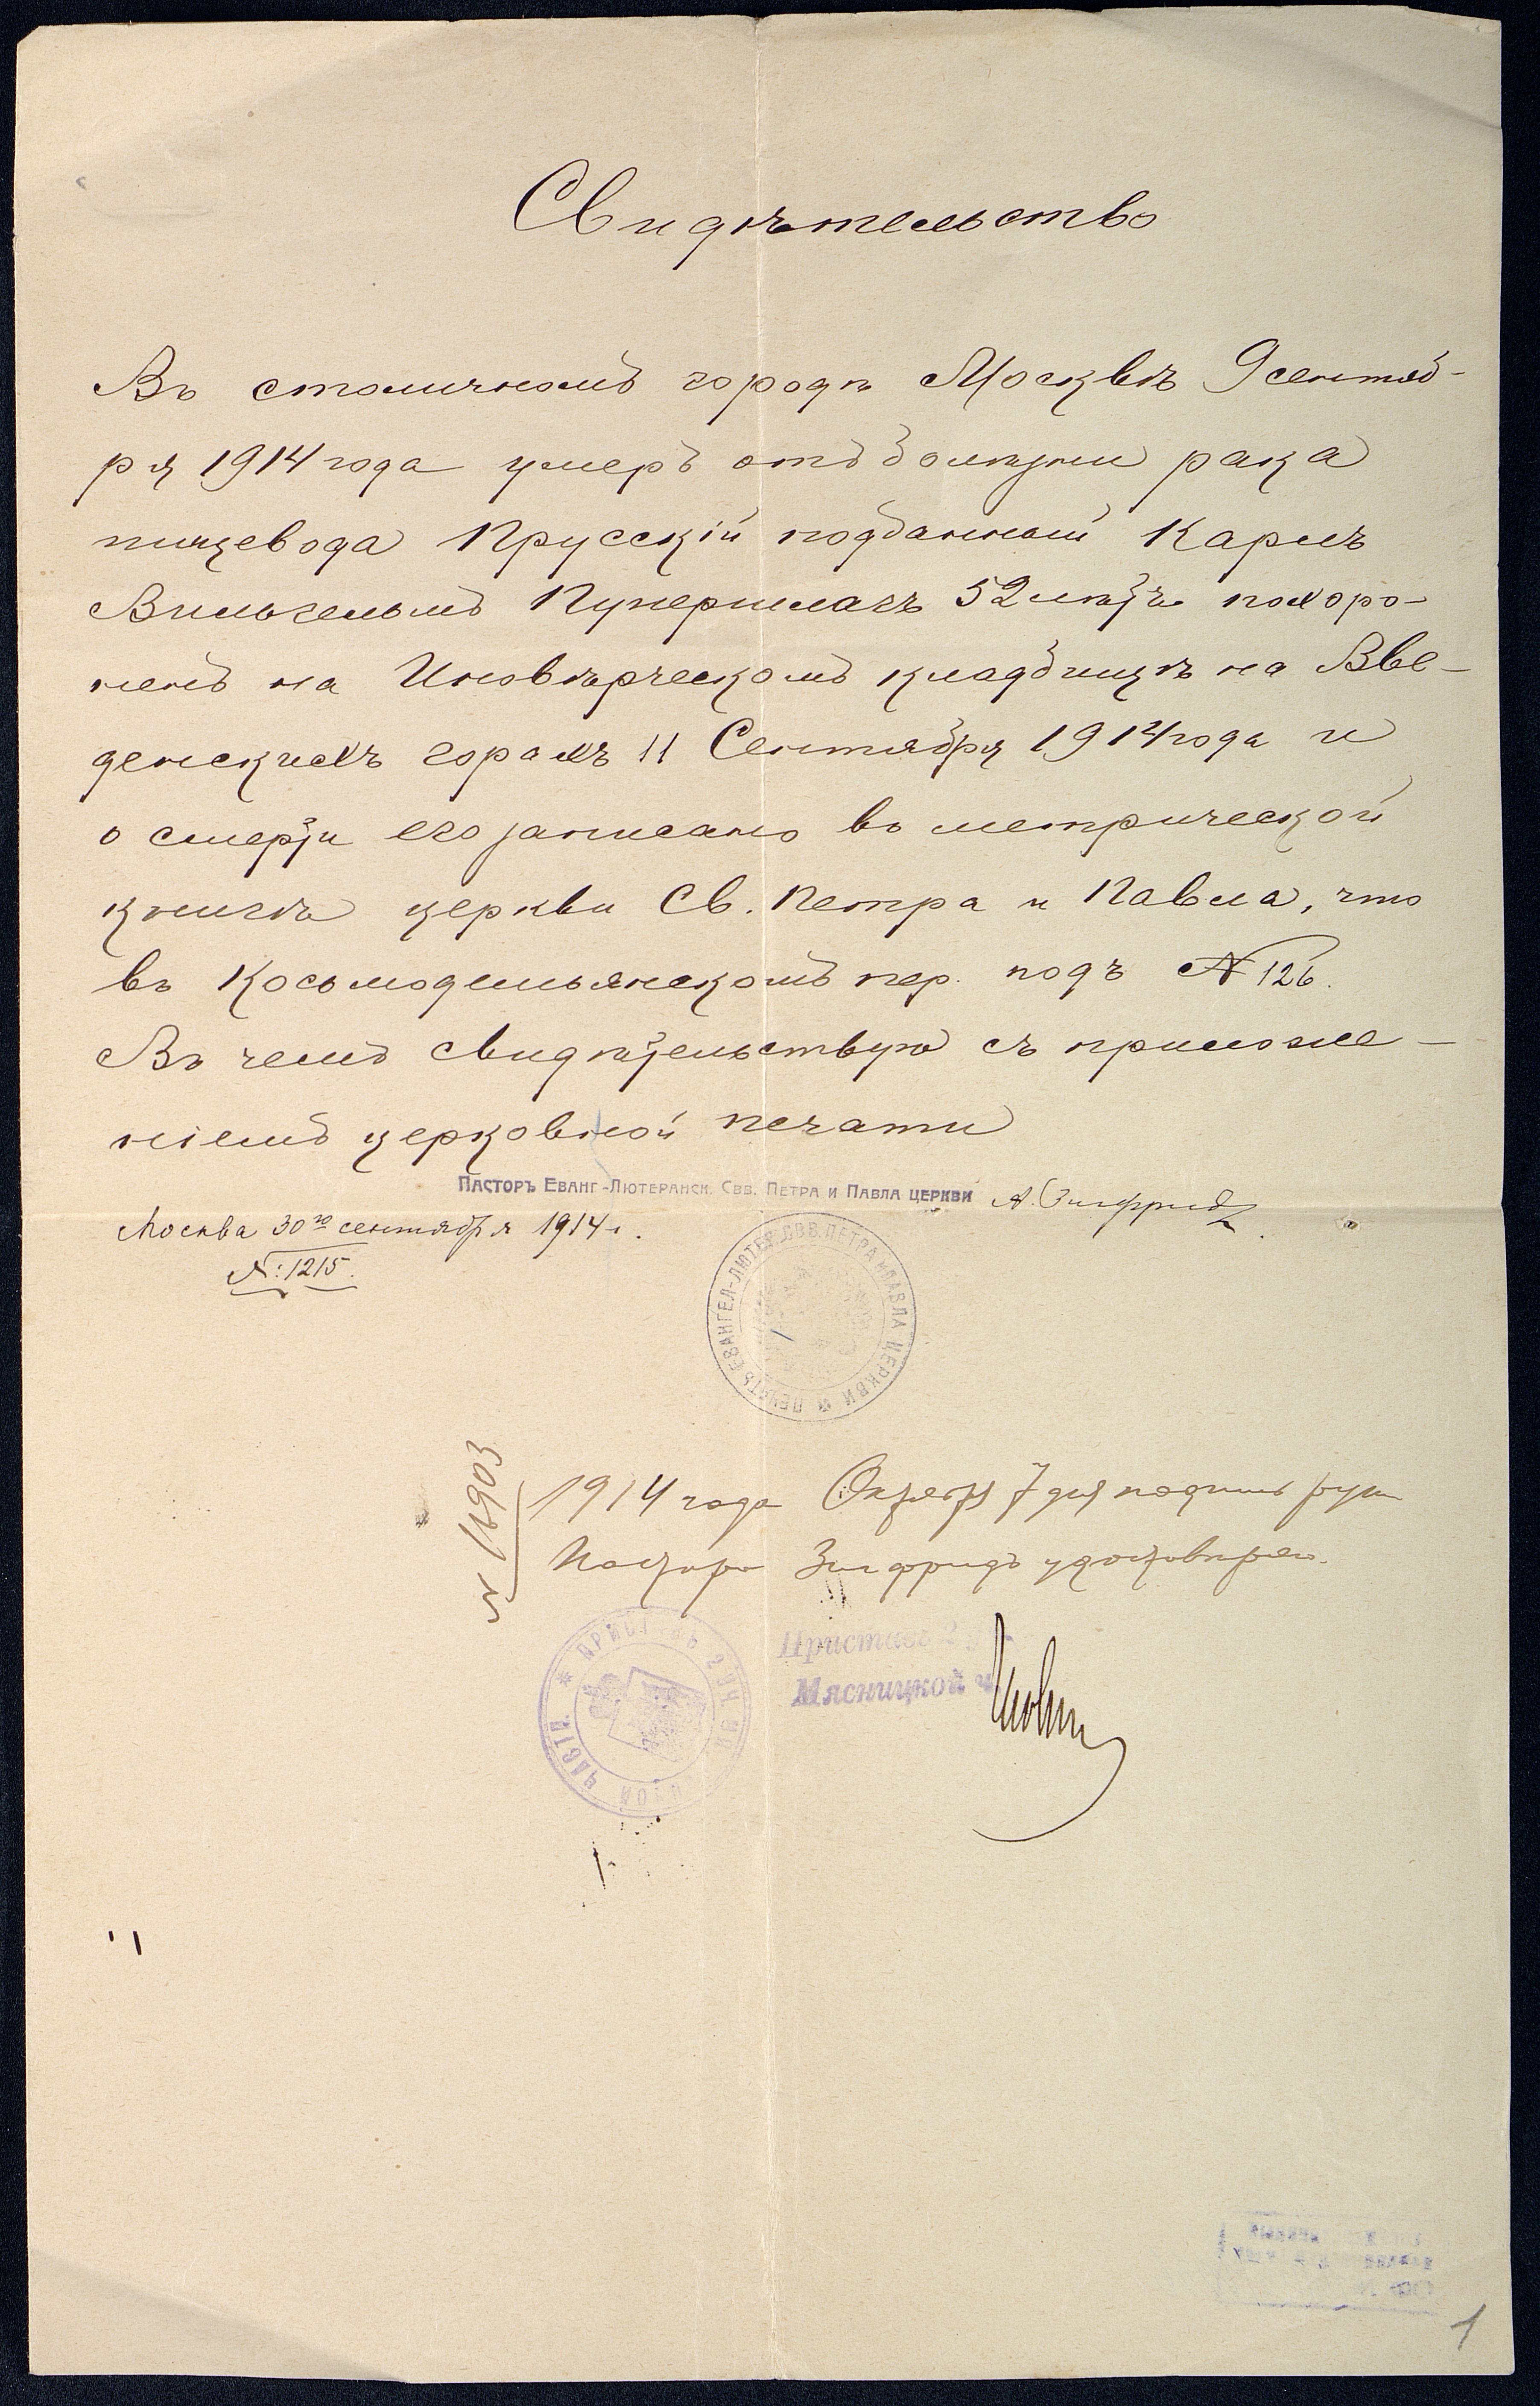 Свидѣтельство
Въ столичномъ городѣ Москвѣ 9 сентяб-
ря 1914 года умеръ отъ болѣзни рака
пищевода Прусскій подданный Карлъ
Вильгельмъ Купершлагъ 52 лѣтъ похоро-
ненъ на Иновѣрческомъ кладбищѣ на Вве-
денскихъ горахъ 11 Сентября 1914 года и
о смерти его записано въ метрической
книгѣ церкви Св. Петра и Павла, что
въ Косьмодемьянскомъ пер. подъ № 126.
Въ чемъ свидѣтельствую съ приложе-
ніемъ церковной печати
Пасторъ Еванг.-Лютеранск. Свв. Петра и Павла церкви А. Зигфридъ.
Москва 30го сентября 1914 г.
№: 1215.
ПЕЧАТЬ ЕВАНГЕЛ-ЛЮТЕР. СВВ. ПЕТРА И ПАВЛА ЦЕРКВИ
№ 16903
1914 года Октября 7 дня подпись руки
Пастора Зигфридъ удостовѣряю.
Приставъ 2 уч.
Мясницкой ч.
ПРИСТАВЪ 2 УЧ. ЧАСТИ
1